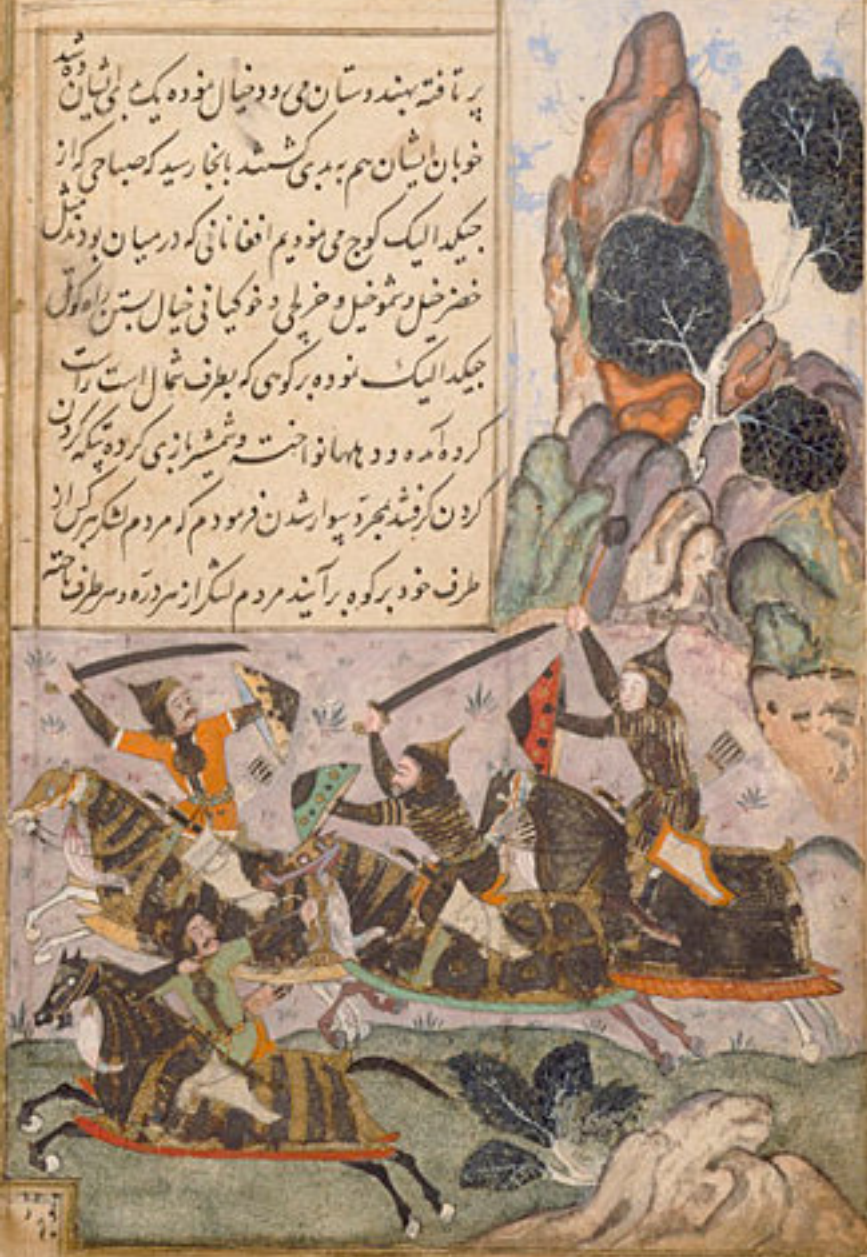 بر تافته بهندوستان می رود خیال نموده یک مرتبه ایشان
خوبان ایشان هم به بدی گشتند بانجا رسید که صباحی که از
جیکدالیک کوچ می نمودیم افغانانی که در میان بودند مثل
خضر خیل و شمو خیل و خرلی و خوکیانی خیال بستن راه کوتل
جیکدالیک نموده بر کوهی که بطرف شمال است راست
کرده آمده و دهلها نواخته و شمشیر بازی کرده
کردن گرفتند بمجرد سوار شدن فرمودم که مردم لشکر هرکس از
طرف خود بر کوه برآیند مردم لشکر از هر دره و هر طرف تاخته